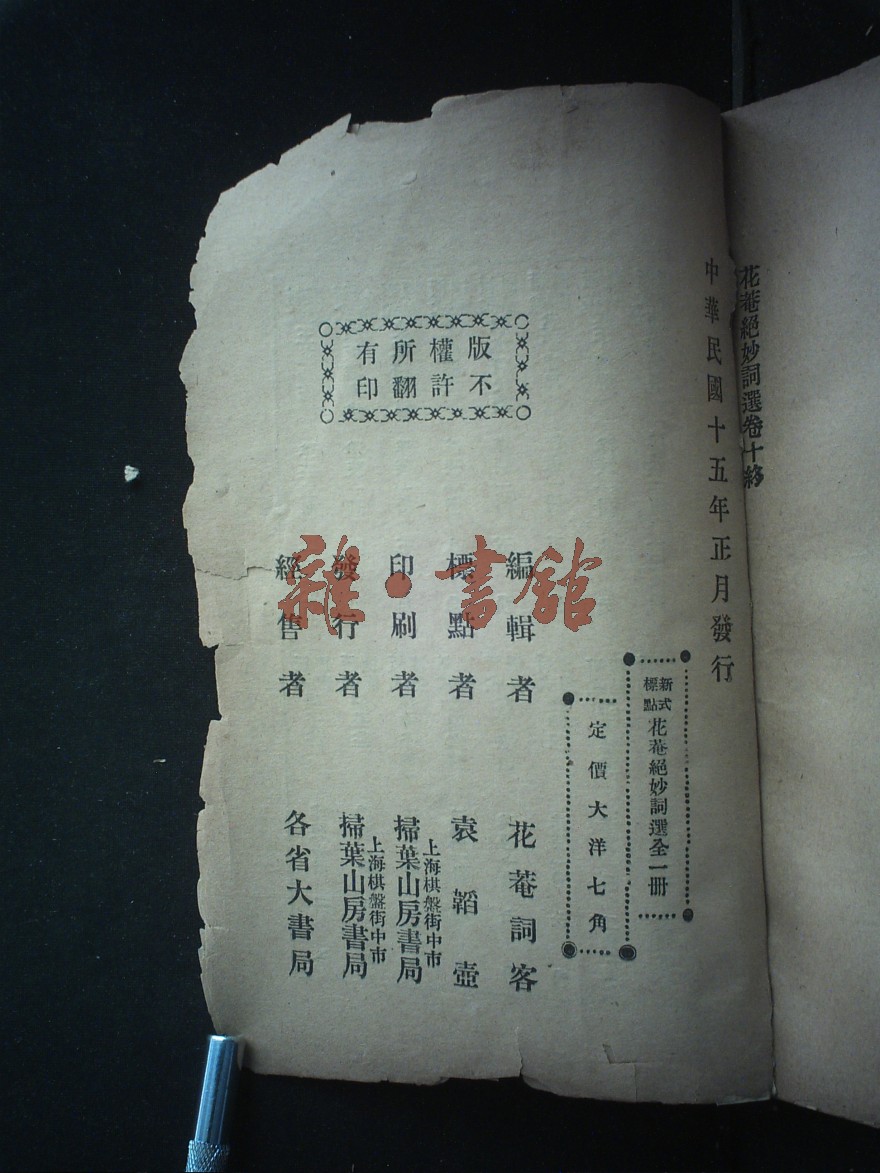 花菴絕妙詞選卷十終
中華民國十五年正月發行
新式標點花菴絕妙詞選全一冊
定價大洋七角
編輯者 花菴詞客
標點者 袁韜壺
印刷者 上海棋盤街中市 掃葉山房書局
發行者 上海棋盤街中市 掃葉山房書局
經售者 各省大書局
版權所有
不許翻印
雜·書館